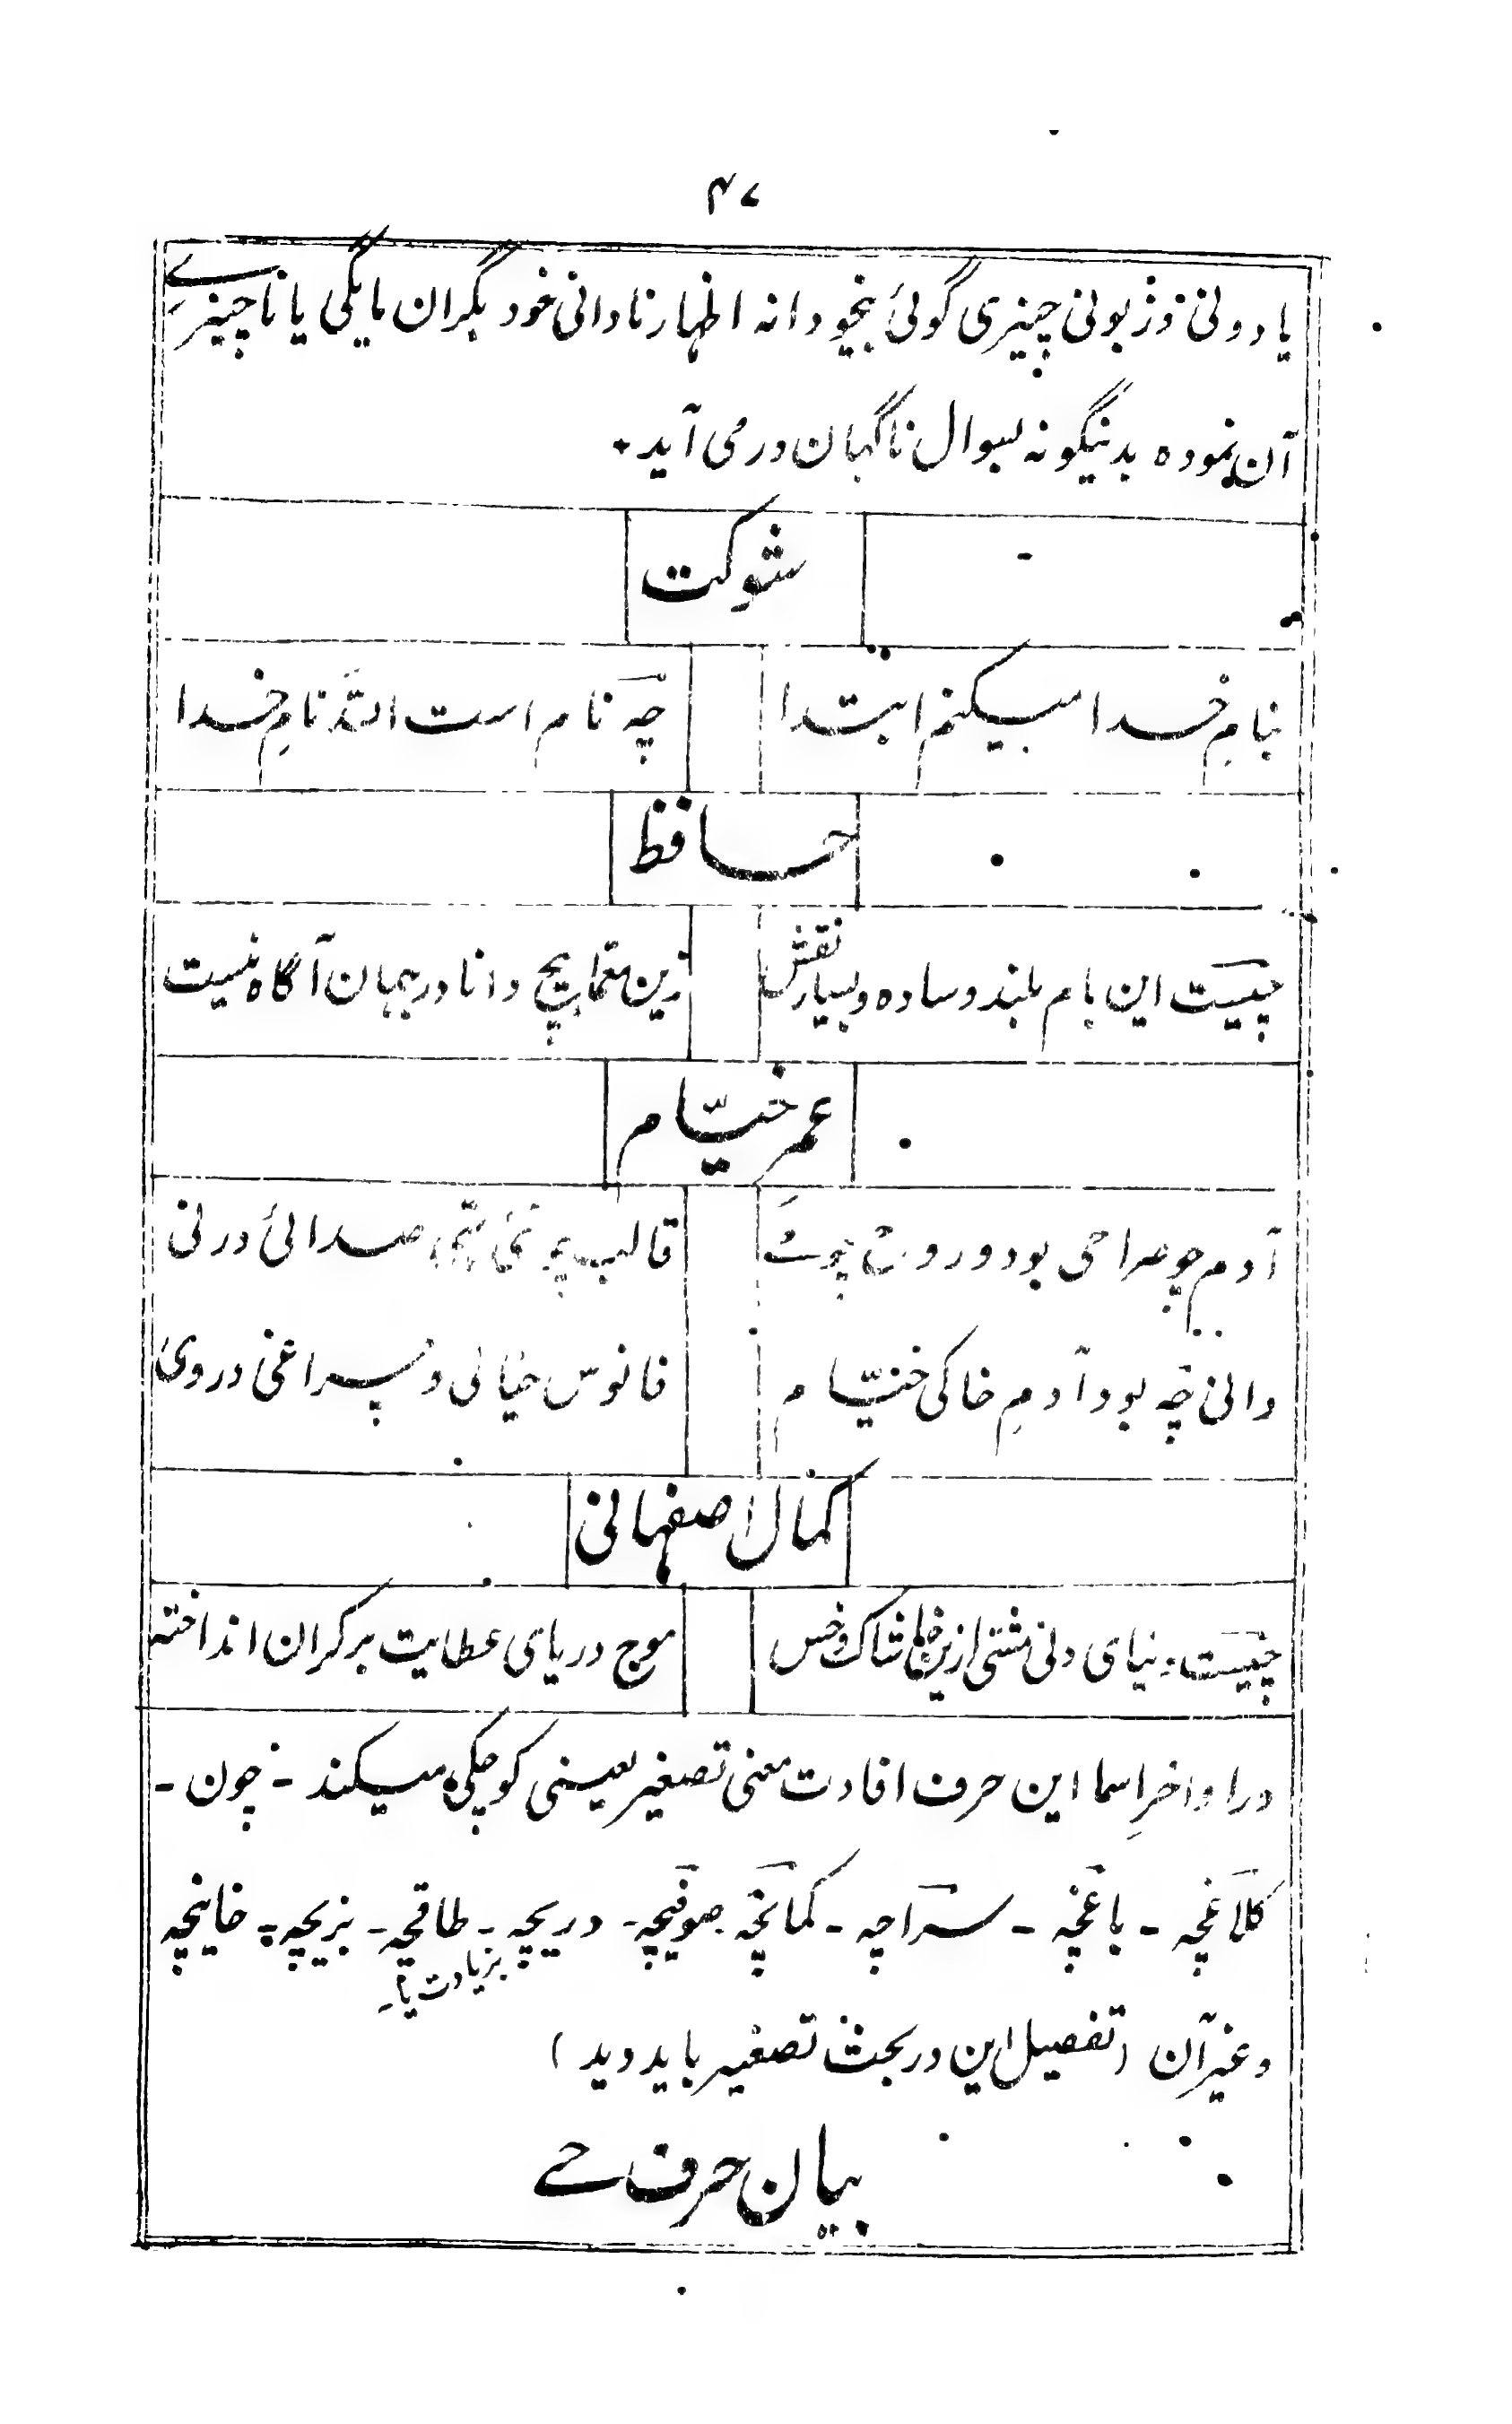 ۴۷
یا دونی و زبونی چیزی گوئ بیخودانه اظهار نادانی خود بگران مایگی یا ناچیزے
آن نموده بدینگونه بسوال ناگهان درمی آید ۔
شوکت
بنامِ خدا میکنم ابتدا
چه نام است اللّٰه نامِ خدا
حافظ
چیست این بام بلند و ساده و بسیار نقش
زین معما هیچ دانا در جهان آگاه نیست
عمر خیّام
آدم چو صراحی بود و روح چو مے
قالب چو نئی صدائی در نی
دانی چه بود آدمِ خاکی خیّام
فانوس خیالی و چراغی در وی
کمال اصفهانی
چیست دنیای دنی مشتی ازین خاشاک و خس
موج دریای عطایت بر کران انداخته
در اواخرِ اسما این حرف افادت معنی تصغیر یعنی کوچکی میکند ۔ چون ۔
کلاغچه ۔ باغچه ۔ سراچه ۔ کمانچه ۔ صوفیچه ۔ دریچه ۔ طاقچه ۔ بزیچه بزیادت یا ۔ خانیچه
و غیر آن (تفصیل این در بحث تصغیر باید دید)
بیان حرف حے